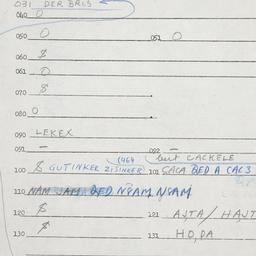 031 DER BRLS
040 O
050 O 051 O
060 $
061 O
070 $
080 O
090 LEKEX
091 — 092 —
(464 but CACKELE
100 $ GUTINKER ZISINEER) 101 GAGA BED A CAC 3
110 NAM JAM BED NPAM NPAM
120 $ 121 AJTA / HAJT
130 $ 131 HO,DA